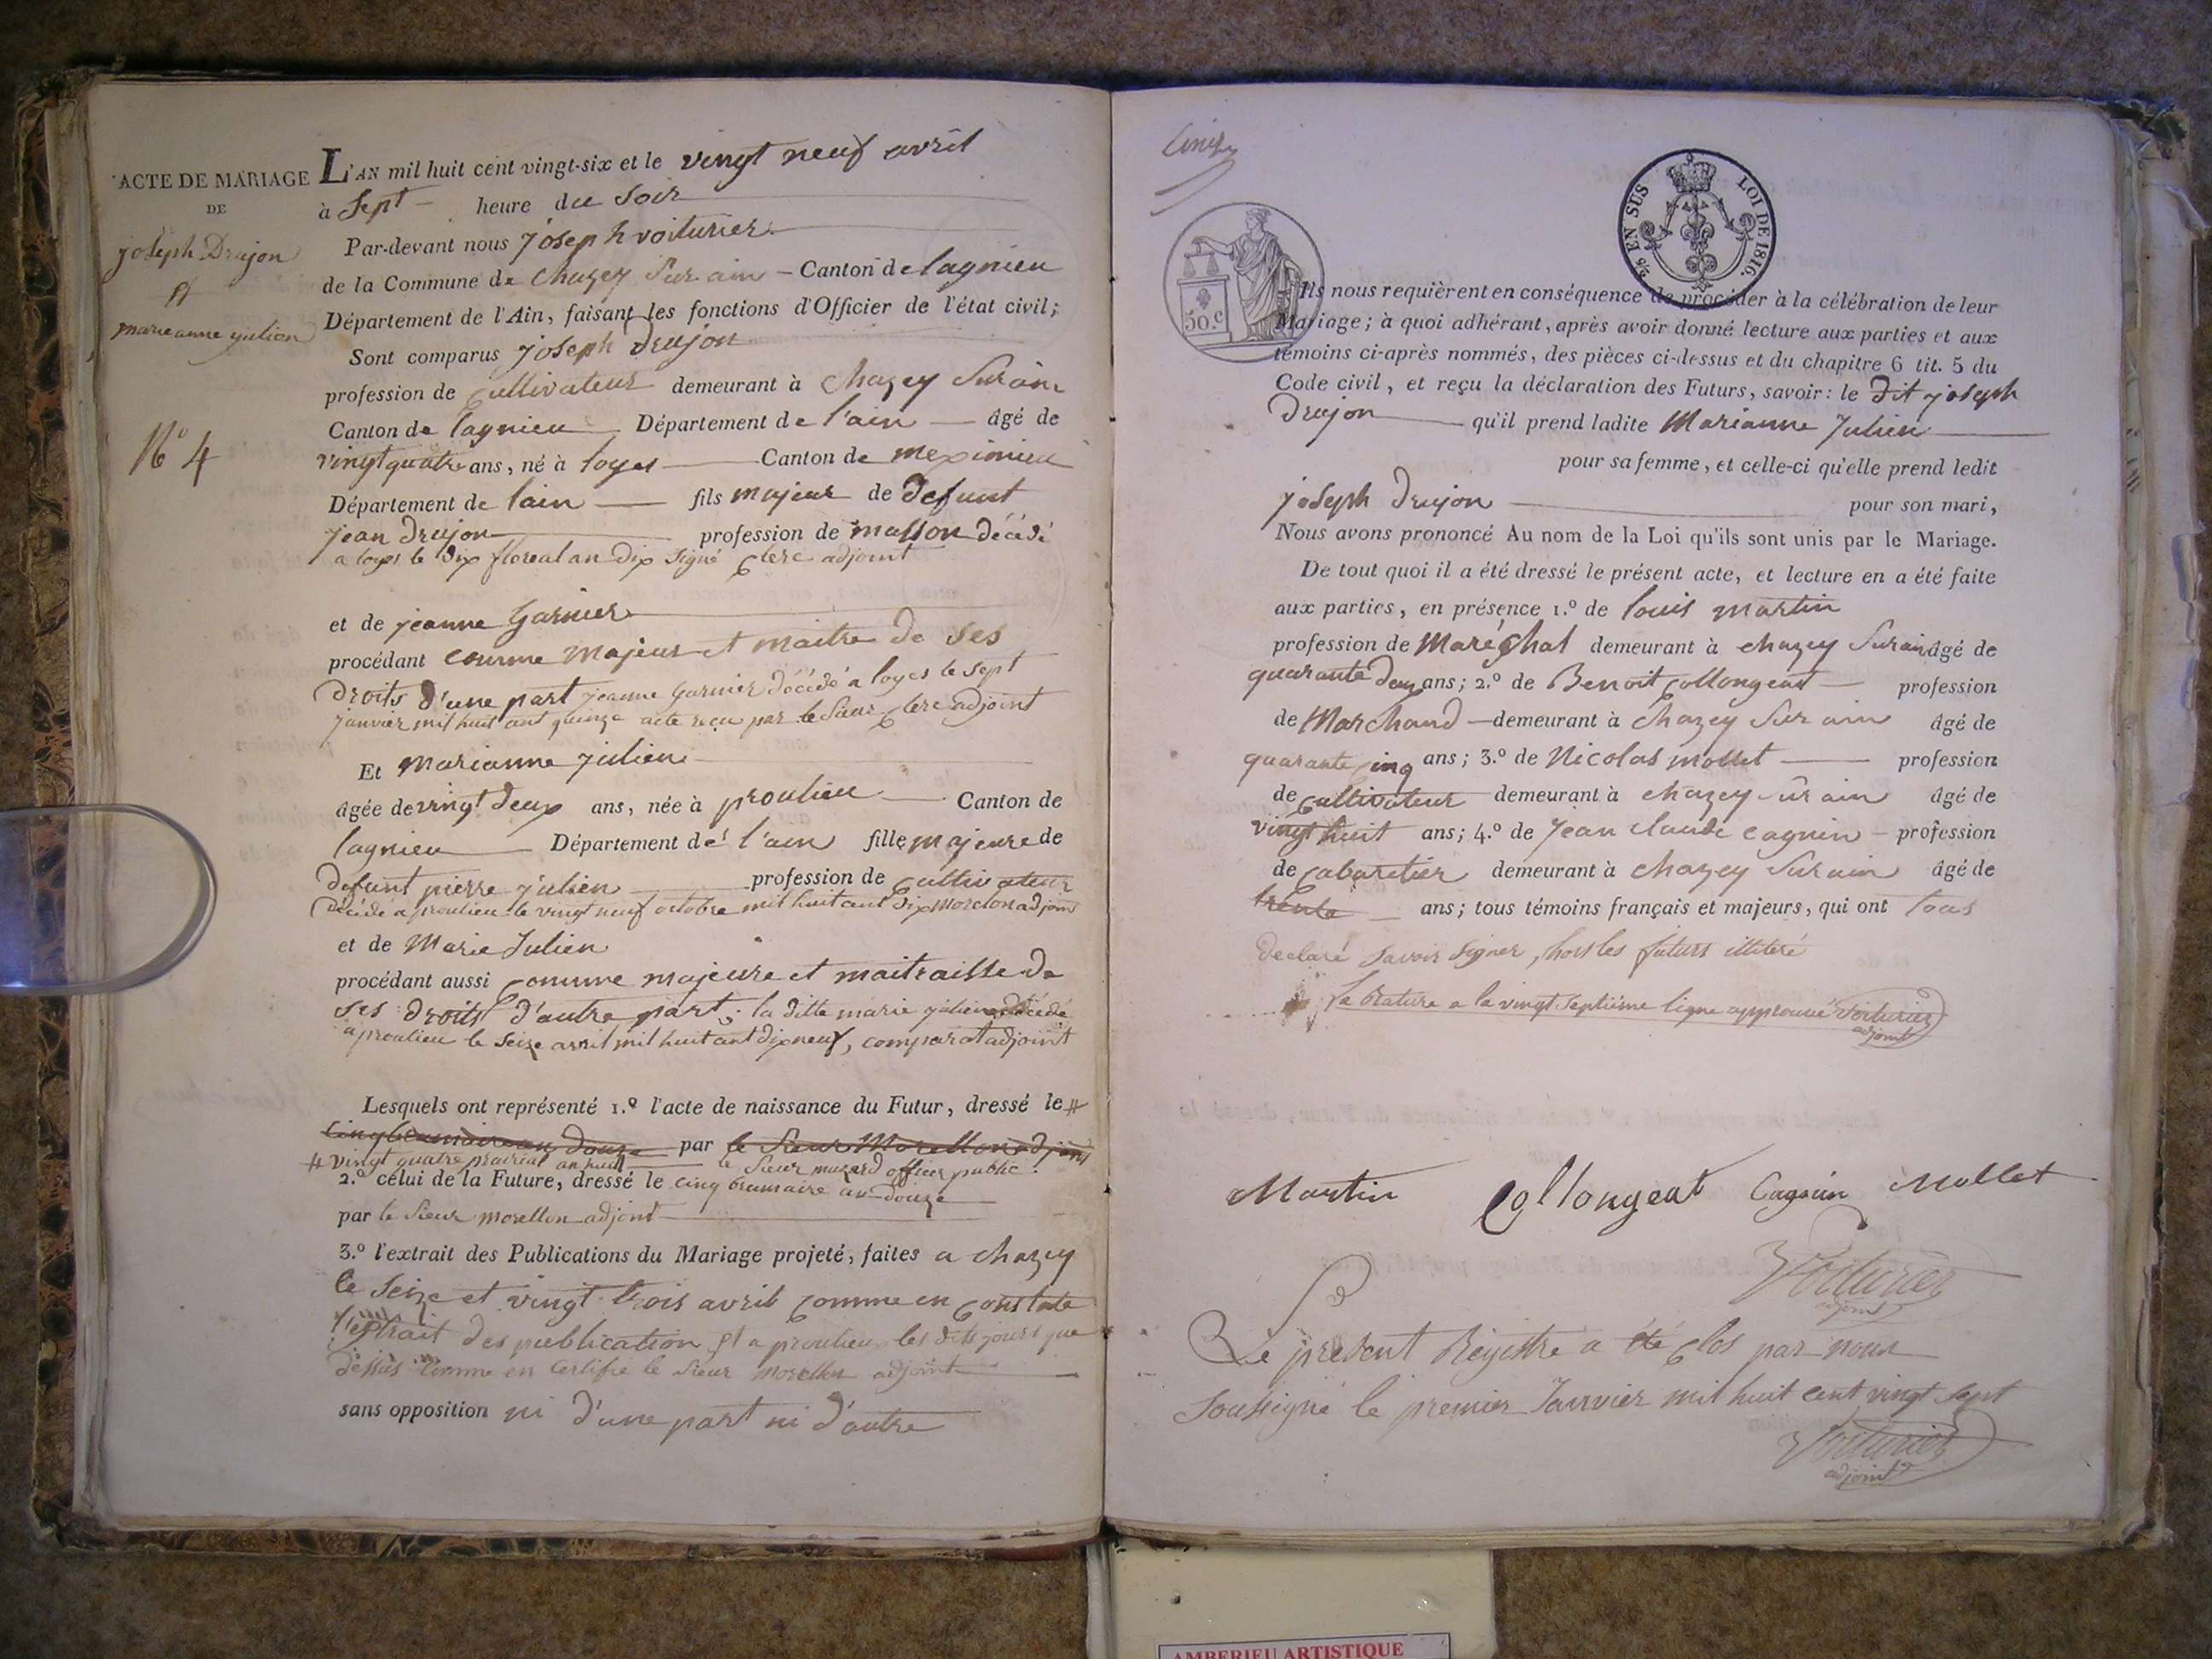 ACTE DE MARIAGE
DE
joseph Drujon
et
marieanne julien
N° 4
L'AN mil huit cent vingt-six et le vingt neuf avril
à Sept heure du Soir
Par-devant nous joseph voiturier
de la Commune de Chazey Sur ain - Canton de lagnieu
Département de l'Ain, faisant les fonctions d'Officier de l'état civil;
Sont comparus joseph Drujon
profession de Cultivateur demeurant à Chazey Sur ain
Canton de lagnieu Département de l'ain âgé de
vingt quatre ans, né à loyes Canton de meximieu
Département de lain fils majeur de defunt
jean Drujon profession de masson décédé
a loyes le dix floreal an dix signé Clerc adjoint
et de jeanne Garnier
procédant comme majeur et maitre de ses
droits d'une part jeanne Garnier décédé a loyes le sept
janvier mil huit cent quinze acte reçu par le Sieur Clerc adjoint
Et marianne julien
âgée de vingt deux ans, née à proulieu Canton de
lagnieu Département de l'ain fille majeure de
defunt pierre julien profession de Cultivateur
décédé a proulieu le vingt neuf octobre mil huit cent dix Morelon adjoint
et de Marie Julien
procédant aussi comme majeure et maitraisse de
ses droits d'autre part; la ditte marie julien décédé
a proulieu le seize avril mil huit cent dix neuf, comparat adjoint
Lesquels ont représenté 1.º l'acte de naissance du Futur, dressé le #
Cinq brumaire an douze par le Sieur Morellon adjoint
# vingt quatre prairial an huit le Sieur muzard officier public
2.º celui de la Future, dressé le cinq brumaire an douze
par le Sieur morellon adjoint
3.º l'extrait des Publications du Mariage projeté, faites a chazey
le Seize et vingt trois avril comme en Constate
l'extrait des publication et a proulieu les dits jours que
dessus comme en Certifie le Sieur morellon adjoint
sans opposition ni d'une part ni d'autre
Cinq
50.c
2/5 EN SUS LOI DE 1816.
Ils nous requièrent en conséquence de procéder à la célébration de leur
Mariage; à quoi adhérant, après avoir donné lecture aux parties et aux
témoins ci-après nommés, des pièces ci-dessus et du chapitre 6 tit. 5 du
Code civil, et reçu la déclaration des Futurs, savoir: le dit joseph
Drujon qu'il prend ladite Marianne Julien
pour sa femme, et celle-ci qu'elle prend ledit
joseph drujon pour son mari,
Nous avons prononcé Au nom de la Loi qu'ils sont unis par le Mariage.
De tout quoi il a été dressé le présent acte, et lecture en a été faite
aux parties, en présence 1.º de louis martin
profession de Maréchal demeurant à chazey Sur ain âgé de
quarante deux ans; 2.º de Benoit Collongeat profession
de Marchand demeurant à Chazey Sur ain âgé de
quarante cinq ans; 3.º de Nicolas mollet profession
de Cultivateur demeurant à chazey-ur ain âgé de
vingt huit ans; 4.º de Jean claude cagnin profession
de Cabaretier demeurant à chazey Sur ain âgé de
trente ans; tous témoins français et majeurs, qui ont tous
declaré savoir signer, hors les futurs illiteré
la Rature a la vingt septième ligne approuvé Voiturier
adjoint
Martin Collongeat Cagnin Mollet
Voiturier
adjoint
Le présent Régistre a été Clos par nous
Soussigné le premier Janvier mil huit cent vingt sept
Voiturier
adjoint
AMBERIEU ARTISTIQUE